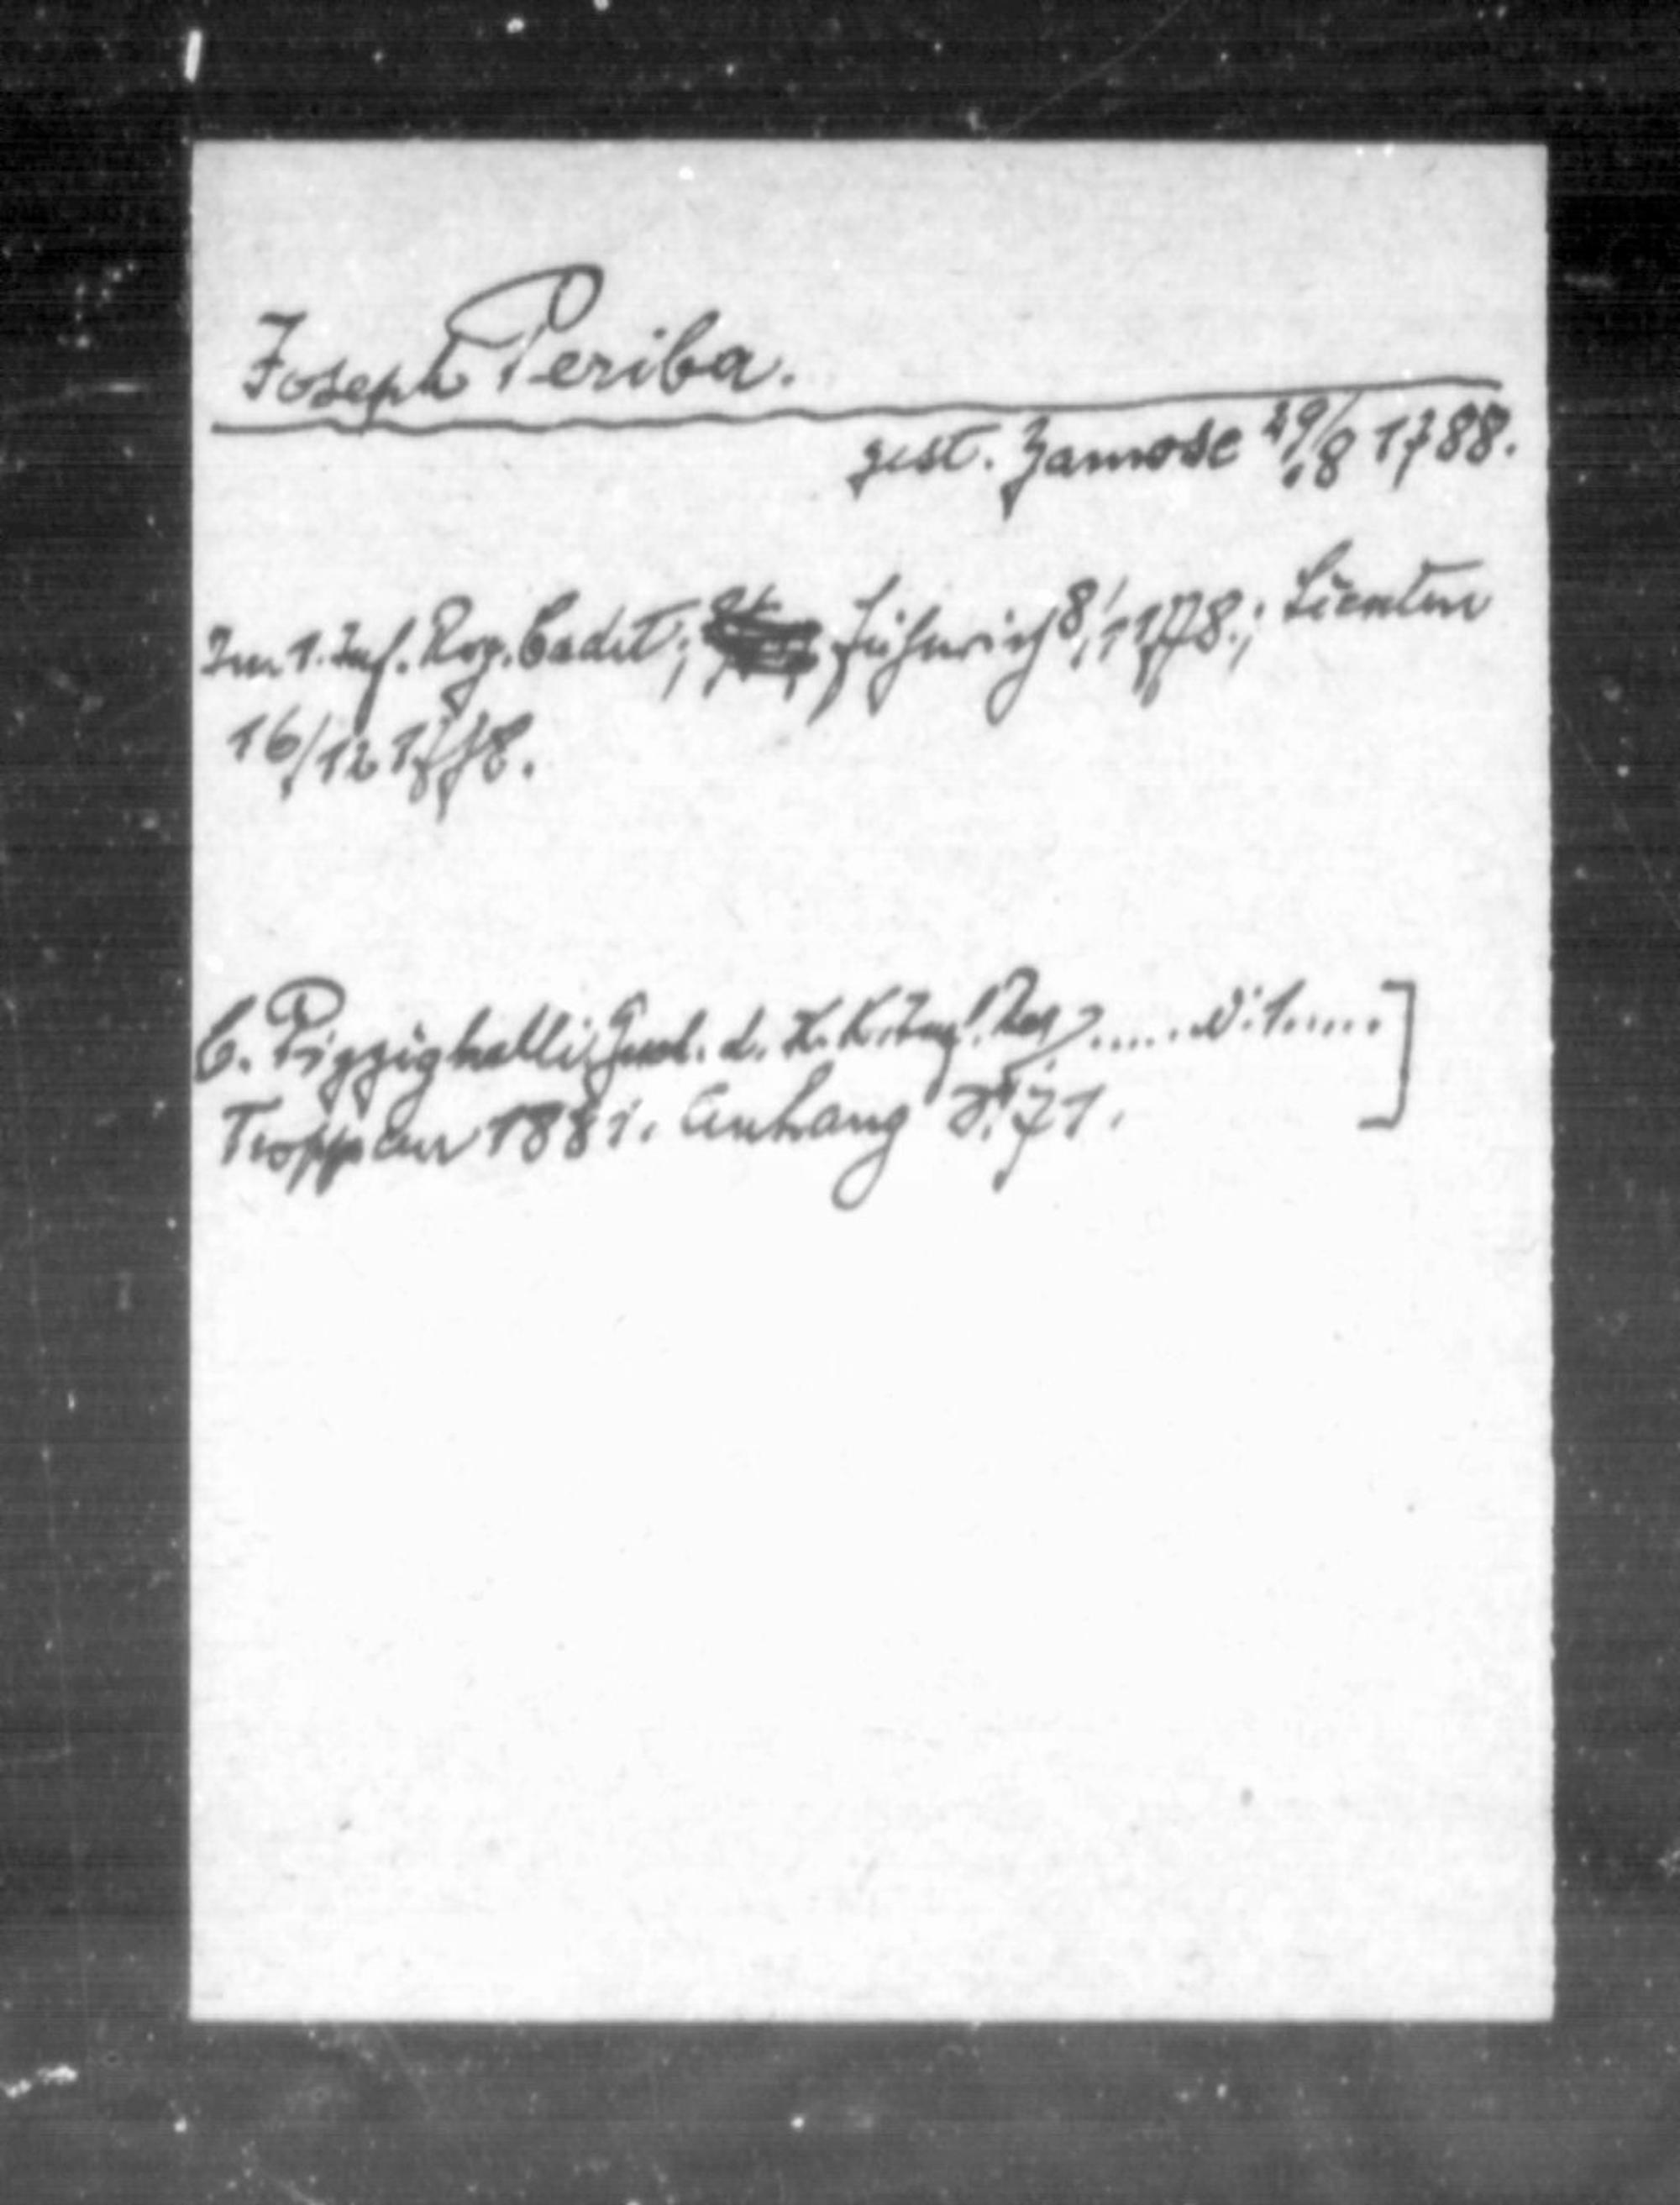 Joseph Periba.
gest. Zamosc 29/8 1788.
Im 1. Inf. Rég. Cadet; Fähnrich 8/1 1778.; Lieuten
16/12 1778.
C. Pizzighelli Gesch. d. K.K. Inf. Reg ..... N: 1.....]
Troppau 1881. Anhang S. 71.